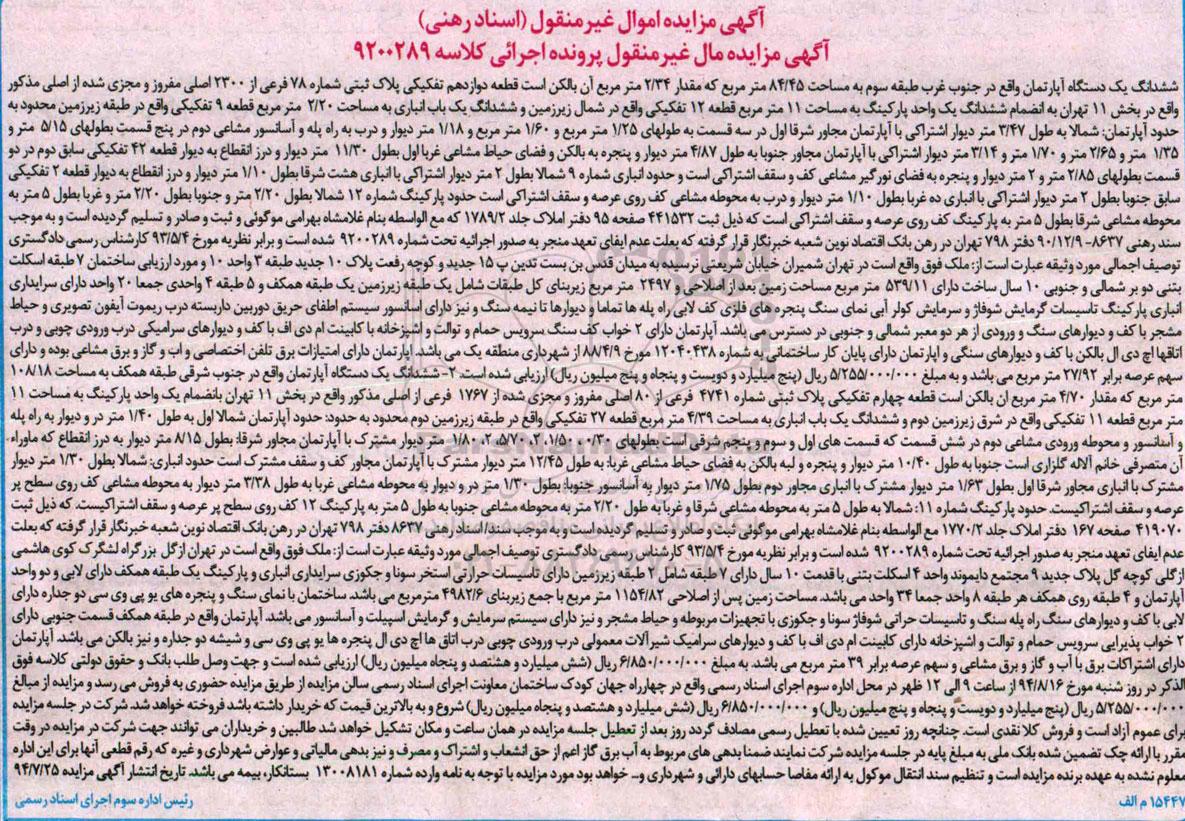 آگهی مزایده اموال غیرمنقول (اسناد رهنی)
آگهی مزایده مال غیرمنقول پرونده اجرائی کلاسه ۹۲۰۰۲۸۹
ششدانگ یک دستگاه آپارتمان واقع در جنوب غرب طبقه سوم به مساحت ۸۴/۴۵ متر مربع که مقدار ۲/۳۴ متر مربع آن بالکن است قطعه دوازدهم تفکیکی پلاک ثبتی شماره ۷۸ فرعی از ۲۳۰۰ اصلی مفروز و مجزی شده از اصلی مذکور
واقع در بخش ۱۱ تهران به انضمام ششدانگ یک واحد پارکینگ به مساحت ۱۱ متر مربع قطعه ۱۲ تفکیکی واقع در شمال زیرزمین و ششدانگ یک باب انباری به مساحت ۲/۲۰ متر مربع قطعه ۹ تفکیکی واقع در طبقه زیرزمین محدود به
حدود آپارتمان: شمالا به طول ۳/۴۷ متر دیوار اشتراکی با آپارتمان مجاور شرقا اول در سه قسمت به طولهای ۱/۲۵ متر مربع و ۱/۶۰ متر مربع و ۱/۱۸ متر دیوار و درب به راه پله و آسانسور مشاعی دوم در پنج قسمت بطولهای ۵/۱۵ متر و
۱/۳۵ متر و ۲/۶۵ متر و ۱/۷۰ متر و ۳/۱۴ متر دیوار اشتراکی با آپارتمان مجاور جنوبا به طول ۴/۸۷ متر دیوار و پنجره به بالکن و فضای حیاط مشاعی غربا اول بطول ۱۱/۳۰ متر دیوار و درز انقطاع به دیوار قطعه ۴۲ تفکیکی سابق دوم در دو
قسمت بطولهای ۲/۸۵ متر و ۲ متر دیوار و پنجره به فضای نورگیر مشاعی کف و سقف اشتراکی است و حدود انباری شماره ۹ شمالا بطول ۲ متر دیوار اشتراکی با انباری هشت شرقا بطول ۱/۱۰ متر دیوار و درز انقطاع به دیوار قطعه ۲ تفکیکی
سابق جنوبا بطول ۲ متر دیوار اشتراکی با انباری ده غربا بطول ۱/۱۰ متر دیوار و درب به محوطه مشاعی کف روی عرصه و سقف اشتراکی است حدود پارکینگ شماره ۱۲ شمالا بطول ۲/۲۰ متر و جنوبا بطول ۲/۲۰ متر و غربا بطول ۵ متر به
محوطه مشاعی شرقا بطول ۵ متر به پارکینگ کف روی عرصه و سقف اشتراکی است که ذیل ثبت ۴۴۱۵۳۲ صفحه ۹۵ دفتر املاک جلد ۱۷۸۹/۲ که مع الواسطه بنام غلامشاه بهرامی موگوئی و ثبت و صادر و تسلیم گردیده است و به موجب
سند رهنی ۸۶۳۷- ۹۰/۱۲/۹ دفتر ۷۹۸ تهران در رهن بانک اقتصاد نوین شعبه خبرنگار قرار گرفته که بعلت عدم ایفای تعهد منجر به صدور اجرائیه تحت شماره ۹۲۰۰۲۸۹ شده است و برابر نظریه مورخ ۹۳/۵/۴ کارشناس رسمی دادگستری
توصیف اجمالی مورد وثیقه عبارت است از: ملک فوق واقع است در تهران شمیران خیابان شریعتی نرسیده به میدان قدس بن بست تدین پ ۱۵ جدید و کوچه رفعت پلاک ۱۰ جدید طبقه ۳ واحد ۱۰ و مورد ارزیابی ساختمان ۷ طبقه اسکلت
بتنی دو بر شمالی و جنوبی ۱۰ سال ساخت دارای ۵۳۹/۱۱ متر مربع مساحت زمین بعد از اصلاحی و ۲۴۹۷ متر مربع زیربنای کل طبقات شامل یک طبقه زیرزمین یک طبقه همکف و ۵ طبقه ۴ واحدی جمعا ۲۰ واحد دارای سرایداری
انباری پارکینگ تاسیسات گرمایش شوفاژ و سرمایش کولر آبی نمای سنگ پنجره های فلزی کف لابی راه پله ها تماما و دیوارها تا نیمه سنگ و نیز دارای آسانسور سیستم اطفای حریق دوربین داربسته درب ریموت آیفون تصویری و حیاط
مشجر با کف و دیوارهای سنگ و ورودی از هر دو معبر شمالی و جنوبی در دسترس می باشد. آپارتمان دارای ۲ خواب کف سنگ سرویس حمام و توالت و آشپزخانه با کابینت ام دی اف با کف و دیوارهای سرامیکی درب ورودی چوبی و درب
اتاقها اچ دی ال بالکن با کف و دیوارهای سنگی و اپارتمان دارای پایان کار ساختمانی به شماره ۱۲۰۴۰۴۳۸ مورخ ۸۸/۴/۹ از شهرداری منطقه یک می باشد. آپارتمان دارای امتیازات برق تلفن اختصاصی و اب و گاز و برق مشاعی بوده و دارای
سهم عرصه برابر ۲۷/۹۲ متر مربع می باشد و به مبلغ ۵/۲۵۵/۰۰۰/۰۰۰ ریال (پنج میلیارد و دویست و پنجاه و پنج میلیون ریال) ارزیابی شده است. ۲- ششدانگ یک دستگاه آپارتمان واقع در جنوب شرقی طبقه همکف به مساحت ۱۰۸/۱۸
متر مربع که مقدار ۴/۷۰ متر مربع ان بالکن است قطعه چهارم تفکیکی پلاک ثبتی شماره ۴۷۴۱ فرعی از ۸۰ اصلی مفروز و مجزی شده از ۱۷۶۷ فرعی از اصلی مذکور واقع در بخش ۱۱ تهران بانضمام یک واحد پارکینگ به مساحت ۱۱
متر مربع قطعه ۱۱ تفکیکی واقع در شرق زیرزمین دوم و ششدانگ یک باب انباری به مساحت ۴/۳۹ متر مربع قطعه ۲۷ تفکیکی واقع در طبقه زیرزمین دوم محدود به حدود: حدود آپارتمان شمالا اول به طول ۱/۴۰ متر در و دیوار به راه پله
و آسانسور و محوطه ورودی مشاعی دوم در شش قسمت که قسمت های اول و سوم و پنجم شرقی است بطولهای ۰/۳۰، ۱/۵۰، ۲، ۵/۷۰، ۲، ۱/۸۰ متر دیوار مشترک با آپارتمان مجاور شرقا: بطول ۸/۱۵ متر دیوار به درز انقطاع که ماوراء
آن متصرفی خانم آلاله گلزاری است جنوبا به طول ۱۰/۴۰ متر دیوار و پنجره و لبه بالکن به فضای حیاط مشاعی غربا: به طول ۱۲/۴۵ متر دیوار مشترک با آپارتمان مجاور کف و سقف مشترک است حدود انباری: شمالا بطول ۱/۳۰ متر دیوار
مشترک با انباری مجاور شرقا اول بطول ۱/۶۳ متر دیوار مشترک با انباری مجاور دوم بطول ۱/۷۵ متر دیوار به آسانسور جنوبا: بطول ۱/۳۰ متر در و دیوار به محوطه مشاعی غربا به طول ۳/۳۸ متر دیوار به محوطه مشاعی کف روی سطح پر
عرصه و سقف اشتراکیست. حدود پارکینگ شماره ۱۱: شمالا به طول ۵ متر به محوطه مشاعی شرقا و غربا به طول ۲/۲۰ متر به محوطه مشاعی جنوبا به طول ۵ متر به پارکینگ ۱۲ کف روی سطح پر عرصه و سقف اشتراکیست. که ذیل ثبت
۴۱۹۰۷۰ صفحه ۱۶۷ دفتر املاک جلد ۱۷۷۰/۲ مع الواسطه بنام غلامشاه بهرامی موگوئی ثبت و صادر و تسلیم گردیده است و به موجب سند/اسناد رهنی ۸۶۳۷ دفتر ۷۹۸ تهران در رهن بانک اقتصاد نوین شعبه خبرنگار قرار گرفته که بعلت
عدم ایفای تعهد منجر به صدور اجرائیه تحت شماره ۹۲۰۰۲۸۹ شده است و برابر نظریه مورخ ۹۳/۵/۴ کارشناس رسمی دادگستری توصیف اجمالی مورد وثیقه عبارت است از: ملک فوق واقع است در تهران ازگل بزرگراه لشگرک کوی هاشمی
ازگلی کوچه گل پلاک جدید ۹ مجتمع دایموند واحد ۴ اسکلت بتنی با قدمت ۱۰ سال دارای ۷ طبقه شامل ۲ طبقه زیرزمین دارای تاسیسات حرارتی استخر سونا و جکوزی سرایداری انباری و پارکینگ یک طبقه همکف دارای لابی و دو واحد
آپارتمان و ۴ طبقه روی همکف هر طبقه ۸ واحد جمعا ۳۴ واحد می باشد. مساحت زمین پس از اصلاحی ۱۱۵۴/۸۲ متر مربع با جمع زیربنای ۴۹۸۲/۶ مترمربع می باشد. ساختمان با نمای سنگ و پنجره های یو پی وی سی دو جداره دارای
لابی با کف و دیوارهای سنگ راه پله سنگ و تاسیسات حراتی شوفاژ سونا و جکوزی با تجهیزات مربوطه و حیاط مشجر و نیز دارای سیستم سرمایش و گرمایش اسپیلت و آسانسور می باشد. آپارتمان واقع در طبقه همکف قسمت جنوبی دارای
۲ خواب پذیرایی سرویس حمام و توالت و اشپزخانه دارای کابینت ام دی اف با کف و دیوارهای سرامیک شیرآلات معمولی درب ورودی چوبی درب اتاق ها اچ دی ال پنجره ها یو پی وی سی و شیشه دو جداره و نیز بالکن می باشد. آپارتمان
دارای اشتراکات برق با آب و گاز و برق مشاعی و سهم عرصه برابر ۳۹ متر مربع می باشد. به مبلغ ۶/۸۵۰/۰۰۰/۰۰۰ ریال (شش میلیارد و هشتصد و پنجاه میلیون ریال) ارزیابی شده است و جهت وصل طلب بانک و حقوق دولتی کلاسه فوق
الذکر در روز شنبه مورخ ۹۴/۸/۱۶ از ساعت ۹ الی ۱۲ ظهر در محل اداره سوم اجرای اسناد رسمی واقع در چهارراه جهان کودک ساختمان معاونت اجرای اسناد رسمی سالن مزایده از طریق مزایده حضوری به فروش می رسد و مزایده از مبالغ
۵/۲۵۵/۰۰۰/۰۰۰ ریال (پنج میلیارد و دویست و پنجاه و پنج میلیون ریال) و ۶/۸۵۰/۰۰۰/۰۰۰ ریال (شش میلیارد و هشتصد و پنجاه میلیون ریال) شروع و به بالاترین قیمت که خریدار داشته باشد فروخته خواهد شد. شرکت در جلسه مزایده
برای عموم آزاد است و فروش کلا نقدی است. چنانچه روز تعیین شده با تعطیل رسمی مصادف گردد روز بعد از تعطیل جلسه مزایده در همان ساعت و مکان تشکیل خواهد شد طالبین و خریداران می توانند جهت شرکت در مزایده در وقت
مقرر با ارائه چک تضمین شده بانک ملی به مبلغ پایه در جلسه مزایده شرکت نمایند ضمنا بدهی های مربوط به آب برق گاز اعم از حق انشعاب و اشتراک و مصرف و نیز بدهی مالیاتی و عوارض شهرداری و غیره که رقم قطعی آنها برای این اداره
معلوم نشده به عهده برنده مزایده است و تنظیم سند انتقال موکول به ارائه مفاصا حسابهای دارائی و شهرداری و... خواهد بود مورد مزایده با توجه به نامه وارده شماره ۱۳۰۰۸۱۸۱ بستانکاره بیمه می باشد. تاریخ انتشار آگهی مزایده ۹۴/۷/۲۵
۱۵۴۴۷ م الف
رئیس اداره سوم اجرای اسناد رسمی